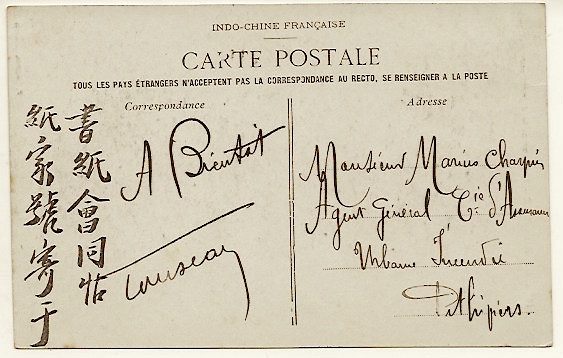 INDO-CHINE FRANÇAISE
CARTE POSTALE
TOUS LES PAYS ÉTRANGERS N'ACCEPTENT PAS LA CORRESPONDANCE AU RECTO, SE RENSEIGNER A LA POSTE
Correspondance
Adresse
書紙會同
紙家號寄于
A Bientôt
Monsieur Marius
Agent Général Cie d'Assurances
Urbaine Incendie